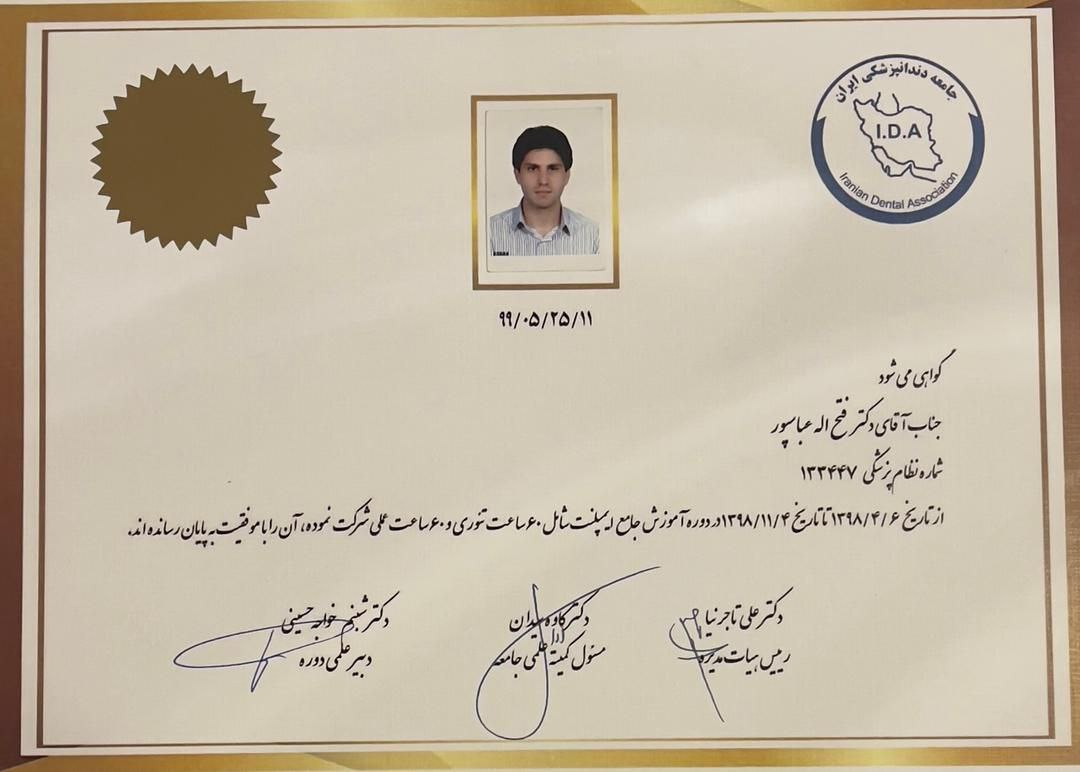 جامعه دندانپزشکی ایران
I.D.A
Iranian Dental Association
۹۹/۰۵/۲۵/۱۱
گواهی می شود
جناب آقای دکتر فتح اله عباسپور
شماره نظام پزشکی ۱۳۳۴۴۷
از تاریخ ۱۳۹۸/۴/۶ تا تاریخ ۱۳۹۸/۱۱/۴ در دوره آموزش جامع ایمپلنت شامل ۶۰ ساعت تئوری و ۶۰ ساعت عملی شرکت نموده، آن را با موفقیت به پایان رسانده اند.
دکتر علی تاجرنیا دکتر کاوه سیدان دکتر شبنم خواجه حسینی
رییس هیات مدیره مسئول کمیته علمی جامعه دبیر علمی دوره